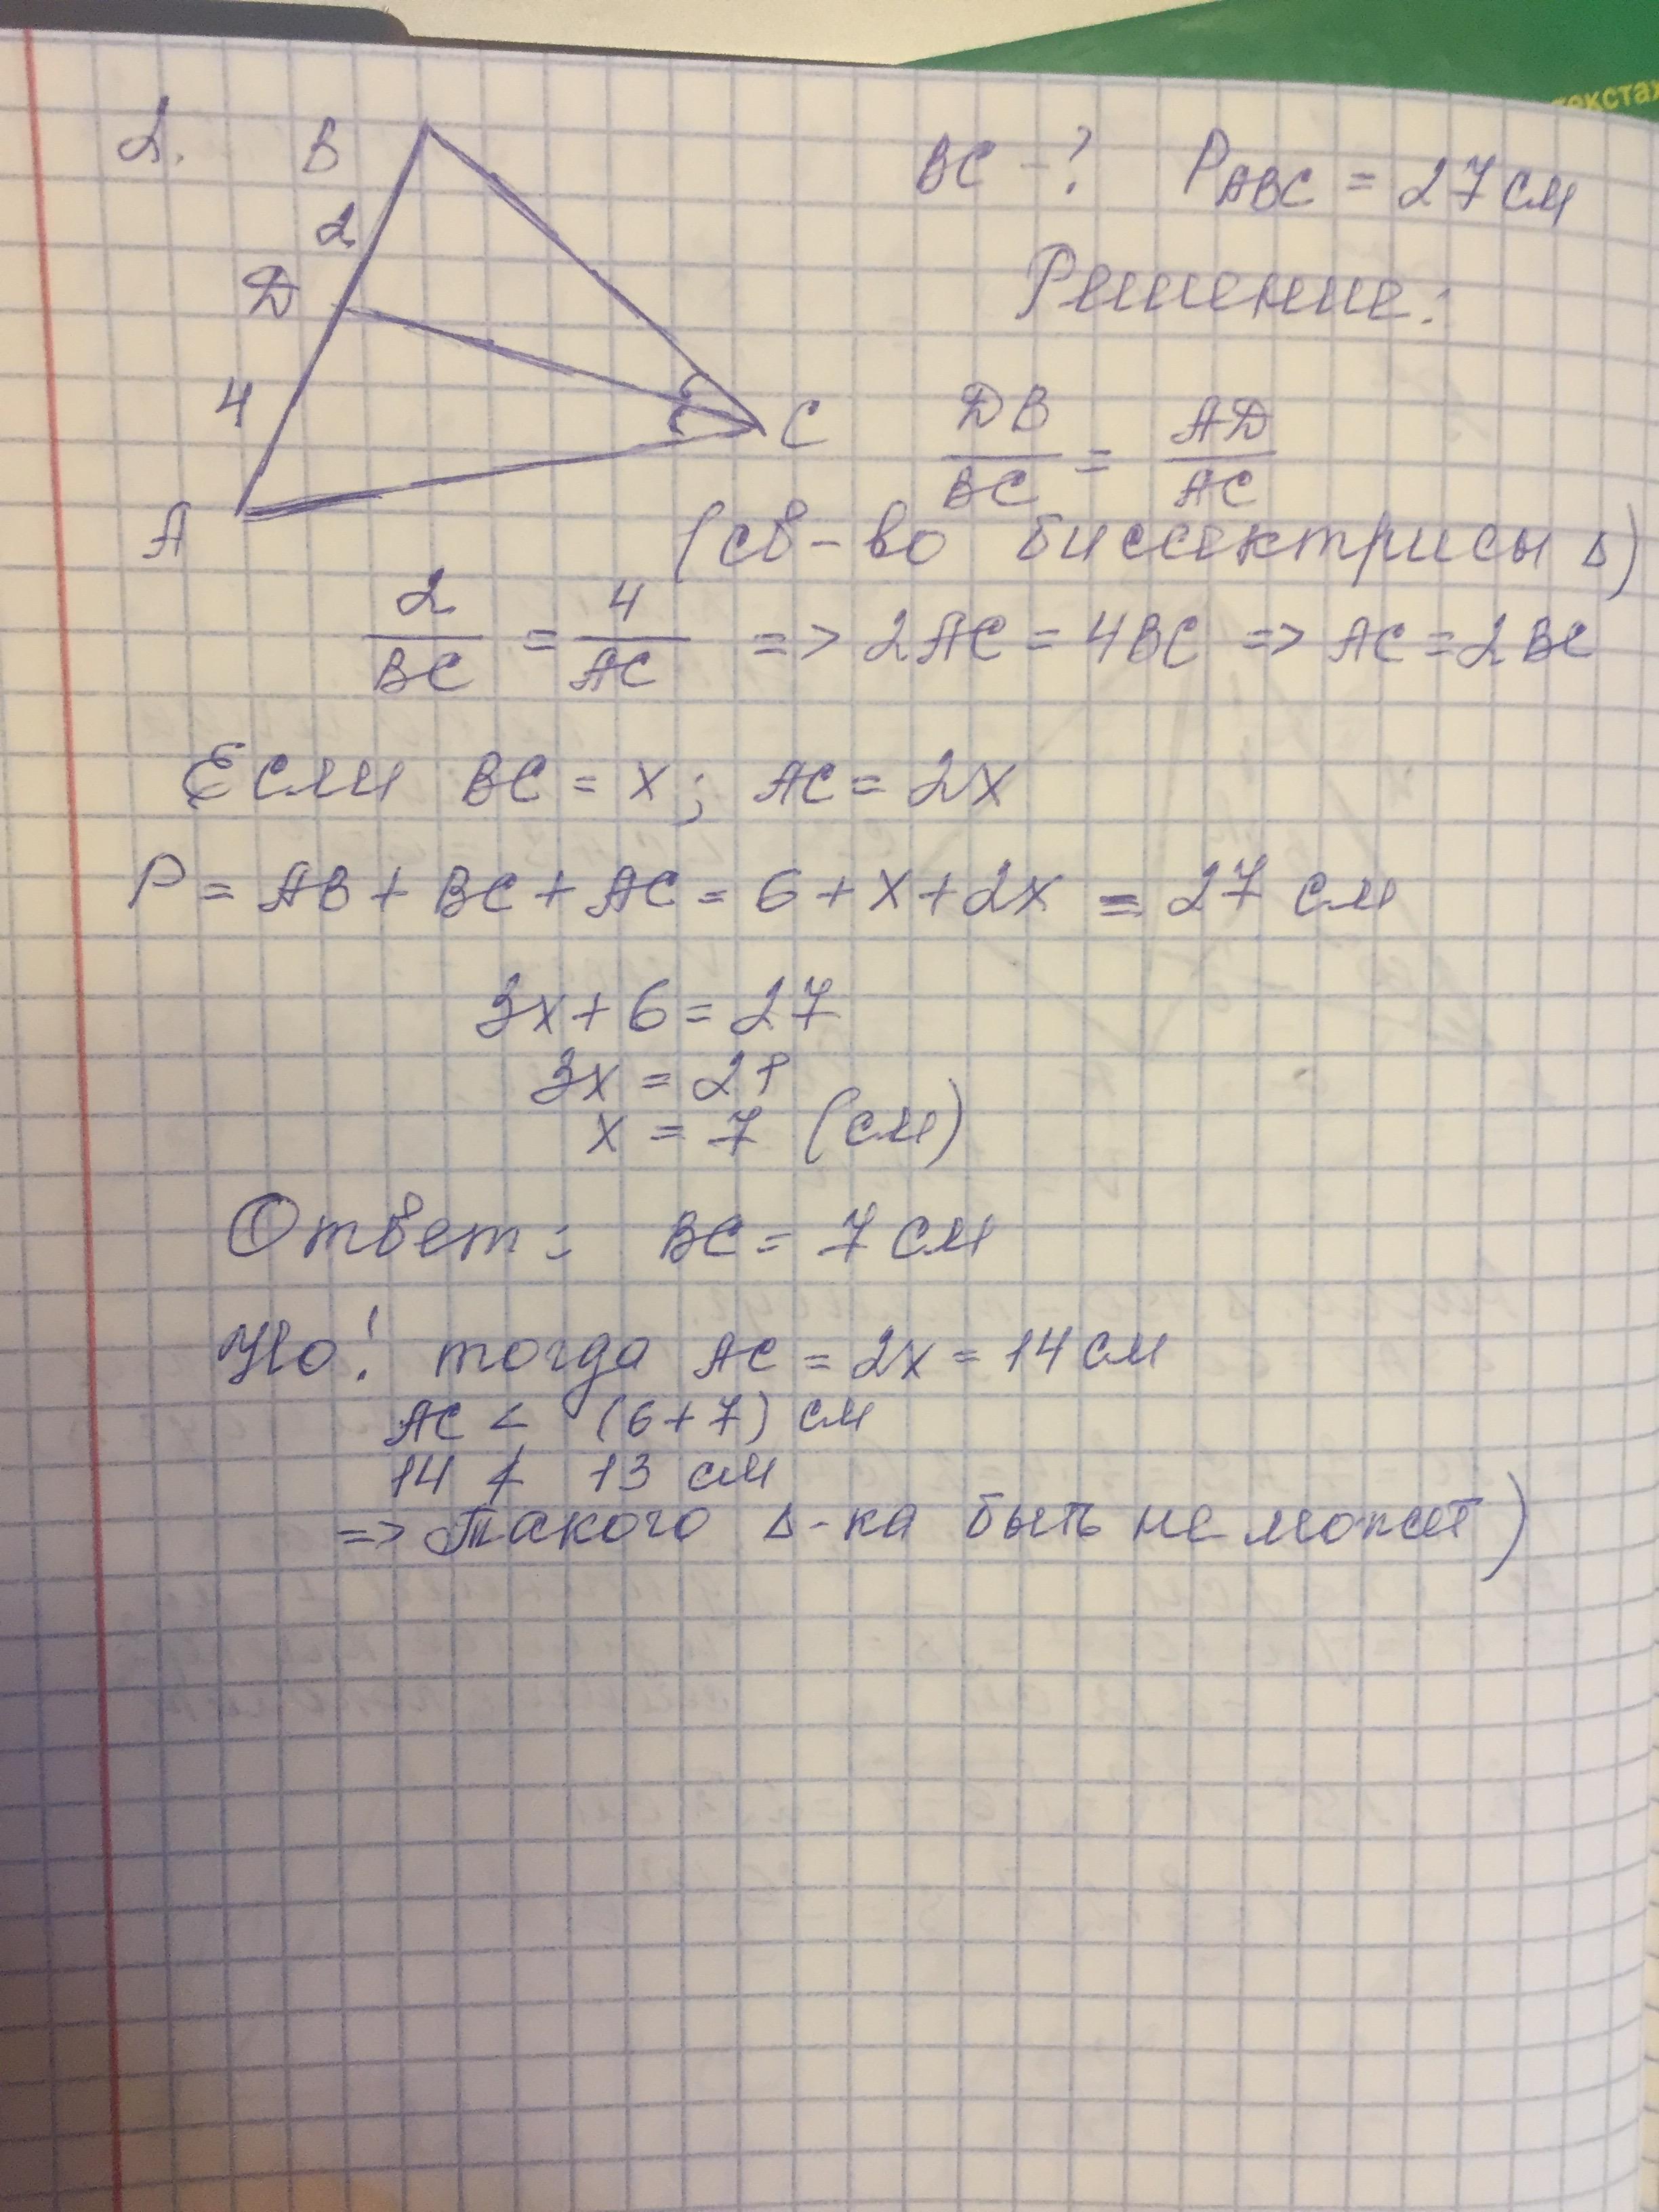 текстах
2. B BC - ? P_ABC = 27 см
2
D Решение:
4
C DB/BC = AD/AC
A (св-во биссектрисы Δ)
2/BC = 4/AC => 2AC = 4BC => AC = 2BC
Если BC = x; AC = 2x
P = AB + BC + AC = 6 + x + 2x = 27 см
3x + 6 = 27
3x = 21
x = 7 (см)
Ответ: BC = 7 см
Но! тогда AC = 2x = 14 см
AC < (6+7) см
14 ≮ 13 см
=> Такого Δ-ка быть не может)